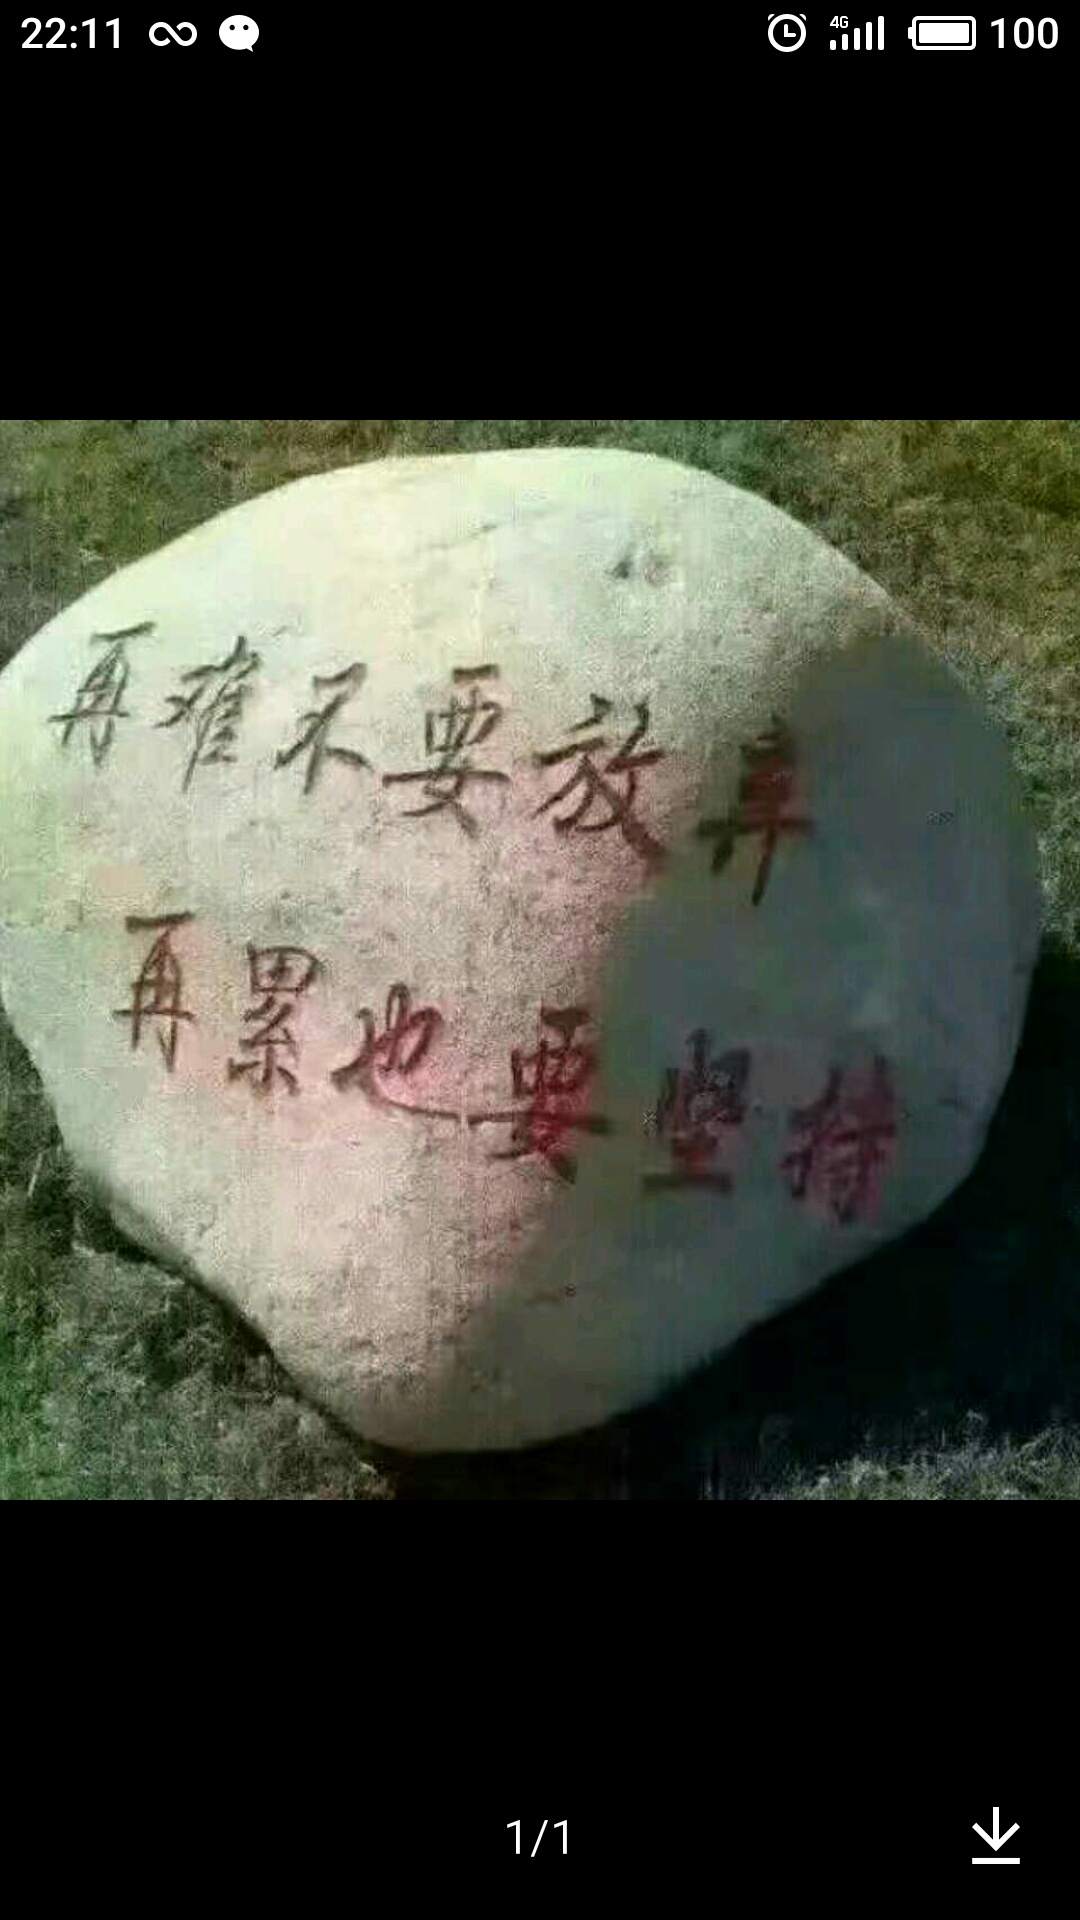 22:11
4G
100
再难不要放弃
再累也要坚持
1/1